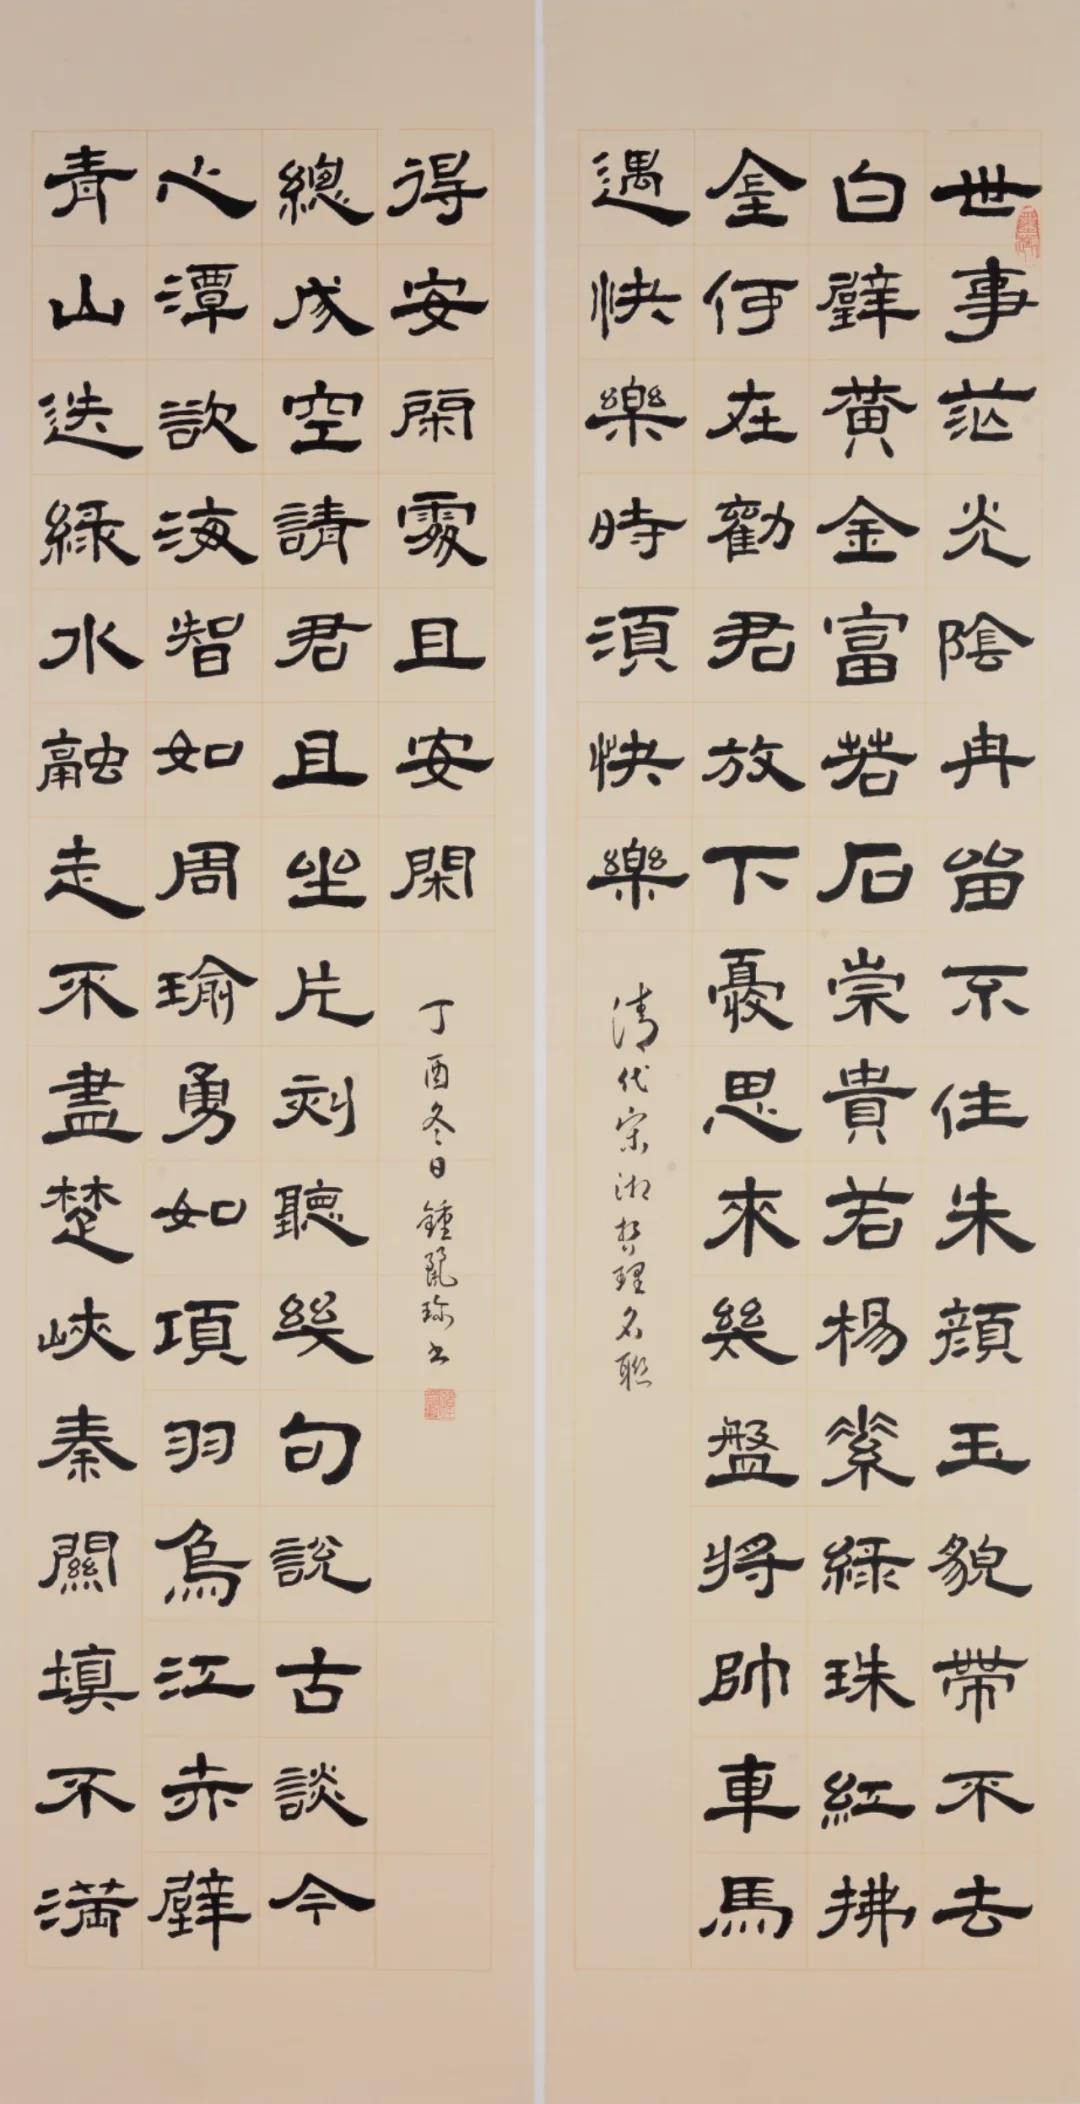 世事茫光陰冉留不住朱顔玉貌帶不去
白璧黄金富若石崇貴若楊素緑珠紅拂
何在勸君放下憂思來幾盤將帥車馬
遇快樂時須快樂
清代宋湘哲理名聯
青山迭緑水融走不盡楚峽秦關填不滿
心潭欲海智如周瑜勇如項羽烏江赤壁
總成空請君且坐片刻聽幾句説古談今
得安閑處且安閑
丁酉冬日鍾麗珍書